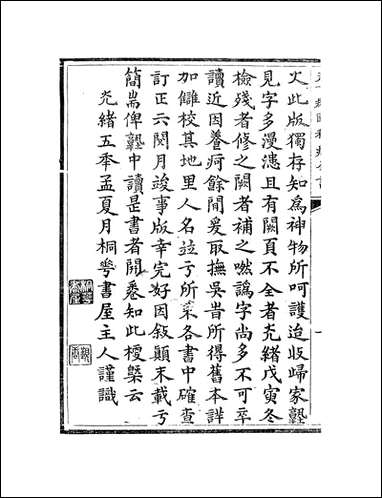 火此版獨存知為神物所呵護迨收歸家塾
見字多漫漶且有闕頁不全者光緒戊寅冬
檢殘者修之闕者補之嘫譌字尚多不可卒
讀近因養疴餘閒爰取撫吳旹所得舊本詳
加讎校其地里人名竝亍所菜各書中確查
訂正六閱月竣事版幸完好因敍顛末載亏
簡耑俾塾中讀是書者開卷知此梗槩云
光緒五年孟夏月桐華書屋主人謹識